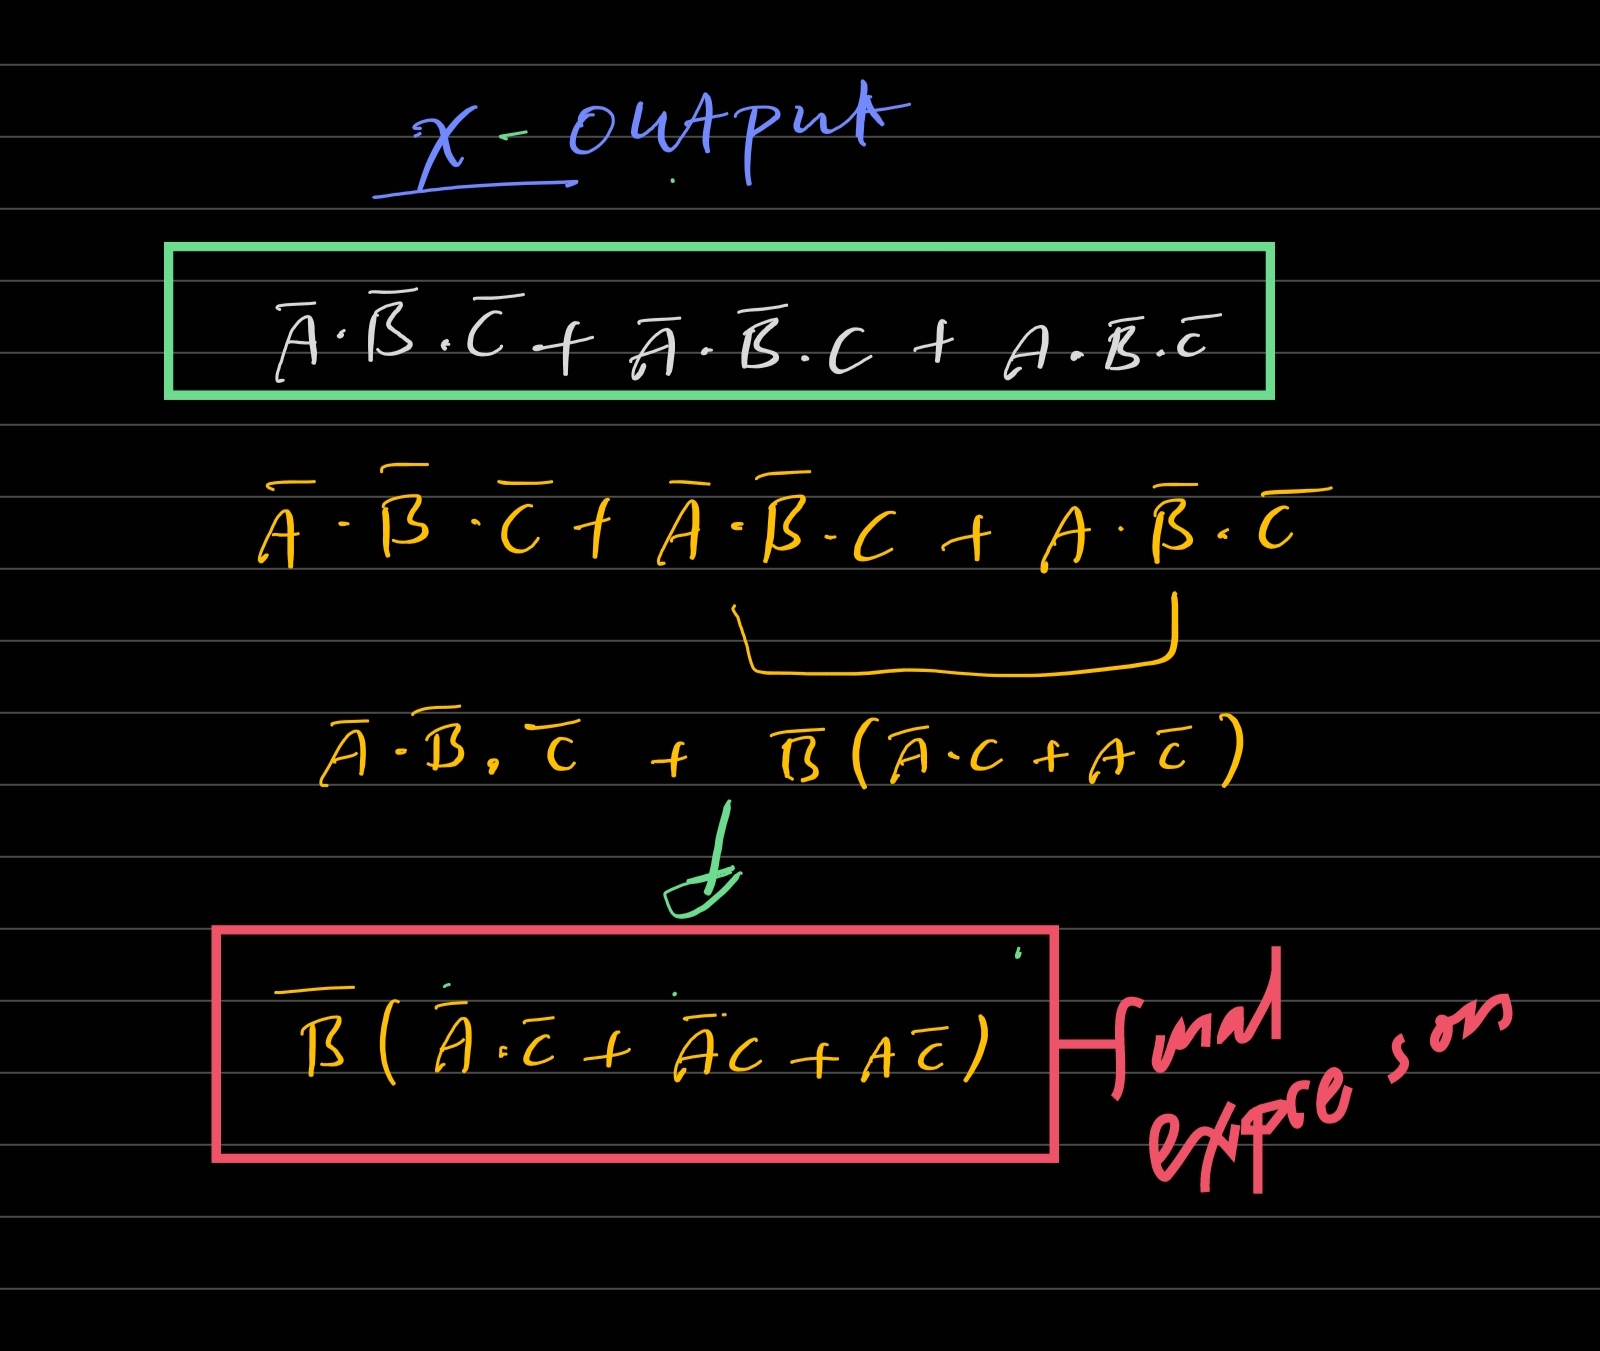 X - output
A̅·B̅.C̅ + A̅·B̅.C + A·B̅.C̅
A̅·B̅·C̅ + A̅·B̅.C + A·B̅.C̅
A̅·B̅.C̅ + B̅(A̅·C + AC̅)
B̅(A̅·C̅ + A̅C + AC̅)
final
expresons